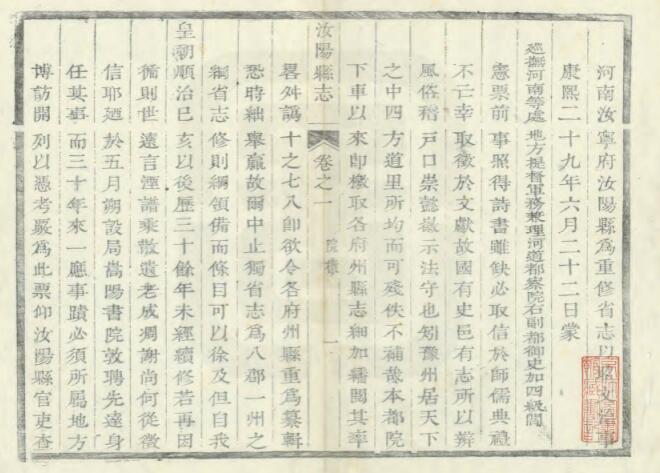 河南汝寧府汝陽縣為重修省志以
康熙二十九年六月二十二日蒙
廵撫河南等處地方提督軍務兼理河道都察院右副都御史加四級閻
憲票前事照得詩書雖缺必取信於師儒典禮
不亡幸取徵於文獻故國有史邑有志所以辨
風俗稽戶口崇懿徽示法守也矧豫州居天下
之中四方道里所均而可殘佚不補哉本都院
下車以來卽檄取各府州縣志細加繙閱其率
汝陽縣志
卷之一
一
畧舛譌十之七八卽欲令各府州縣重為纂輯
恐時絀舉贏故爾中止獨省志為八郡一州之
綱省志修則綱領備而條目可以徐及但自我
皇朝順治已亥以後歷三十餘年未經續修若再因
循則世遠言湮譜乘散遺老成凋謝尚何從徵
信耶廼於五月朔設局嵩陽書院敦聘先達身
任其事而三十年來一應事蹟必須所屬地方
博訪開列以憑考嚴為此票仰汝陽縣官吏查